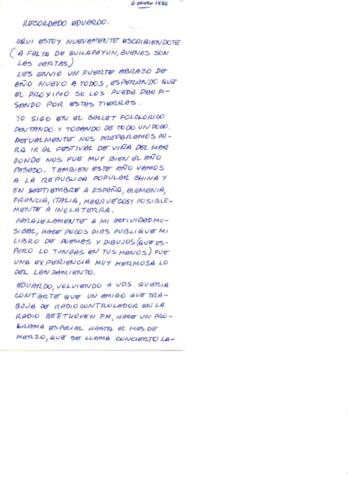 6 ENERO 1986
RECORDADO EDUARDO.
AQUI ESTOY NUEVAMENTE ESCRIBIENDOTE
(A FALTA DE QUILAPAYUN, BUENAS SON
LAS CARTAS)
LES ENVIO UN FUERTE ABRAZO DE
AÑO NUEVO A TODOS, ESPERANDO QUE
EL PROXIMO SE LOS PUEDA DAR PI-
SANDO POR ESTAS TIERRAS.
YO SIGO EN EL BALLET FOLCLORICO
CANTANDO Y TOCANDO DE TODO UN POCO.
ACTUALMENTE NOS PREPARAMOS PA-
RA IR AL FESTIVAL DE VIÑA DEL MAR
DONDE NOS FUE MUY BIEN EL AÑO
PASADO. TAMBIEN ESTE AÑO VAMOS
A LA REPUBLICA POPULAR CHINA Y
EN SEPTIEMBRE A ESPAÑA, ALEMANIA,
FRANCIA, ITALIA, MARRUECOS Y POSIBLE-
MENTE A INGLATERRA.
PARALELAMENTE A MI ACTIVIDAD MU-
SICAL, HACE POCOS DIAS PUBLIQUE MI
LIBRO DE POEMAS Y DIBUJOS (QUE ES-
PERO LO TENGAS EN TUS MANOS) FUE
UNA EXPERIENCIA MUY HERMOSA LO
DEL LANZAMIENTO.
EDUARDO, VOLVIENDO A UDS. QUERIA
CONTARTE QUE UN AMIGO QUE TRA-
BAJA DE RADIOCONTROLADOR EN LA
RADIO BEETHOVEN FM, HACE UN PRO-
GRAMA ESPECIAL HASTA EL MES DE
MARZO, QUE SE LLAMA CONCIERTO LA-